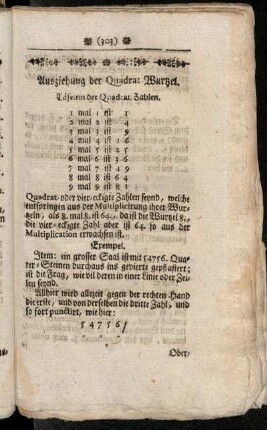 (303)
Ausziehung der Quadrat Wurtzel.
Täfelein der Quadrat-Zahlen.
1 mal 1 ist 1
2 mal 2 ist 4
3 mal 3 ist 9
4 mal 4 ist 16
5 mal 5 ist 25
6 mal 6 ist 36
7 mal 7 ist 49
8 mal 8 ist 64
9 mal 9 ist 81
Quadrat- oder vier-eckigte Zahlen seynd, welche
entspringen aus der Multiplicirung ihrer Wur-
tzeln, als 8. mal 8. ist 64., da ist die Wurtzel 8.,
die vier-eckigte Zahl aber ist 64. so aus der
Multiplication erwachsen ist.
Exempel.
Item: ein grosser Saal ist mit 54756. Qua-
ter-Steinen durchaus ins gevierte gepflastert;
ist die Frag, wie vil deren in einer Linie oder Zei-
len seynd.
Allhier wird allezeit gegen der rechten Hand
die erste, und von derselben die dritte Zahl, und
so fort punctirt, wie hier:
54756/
Ober,